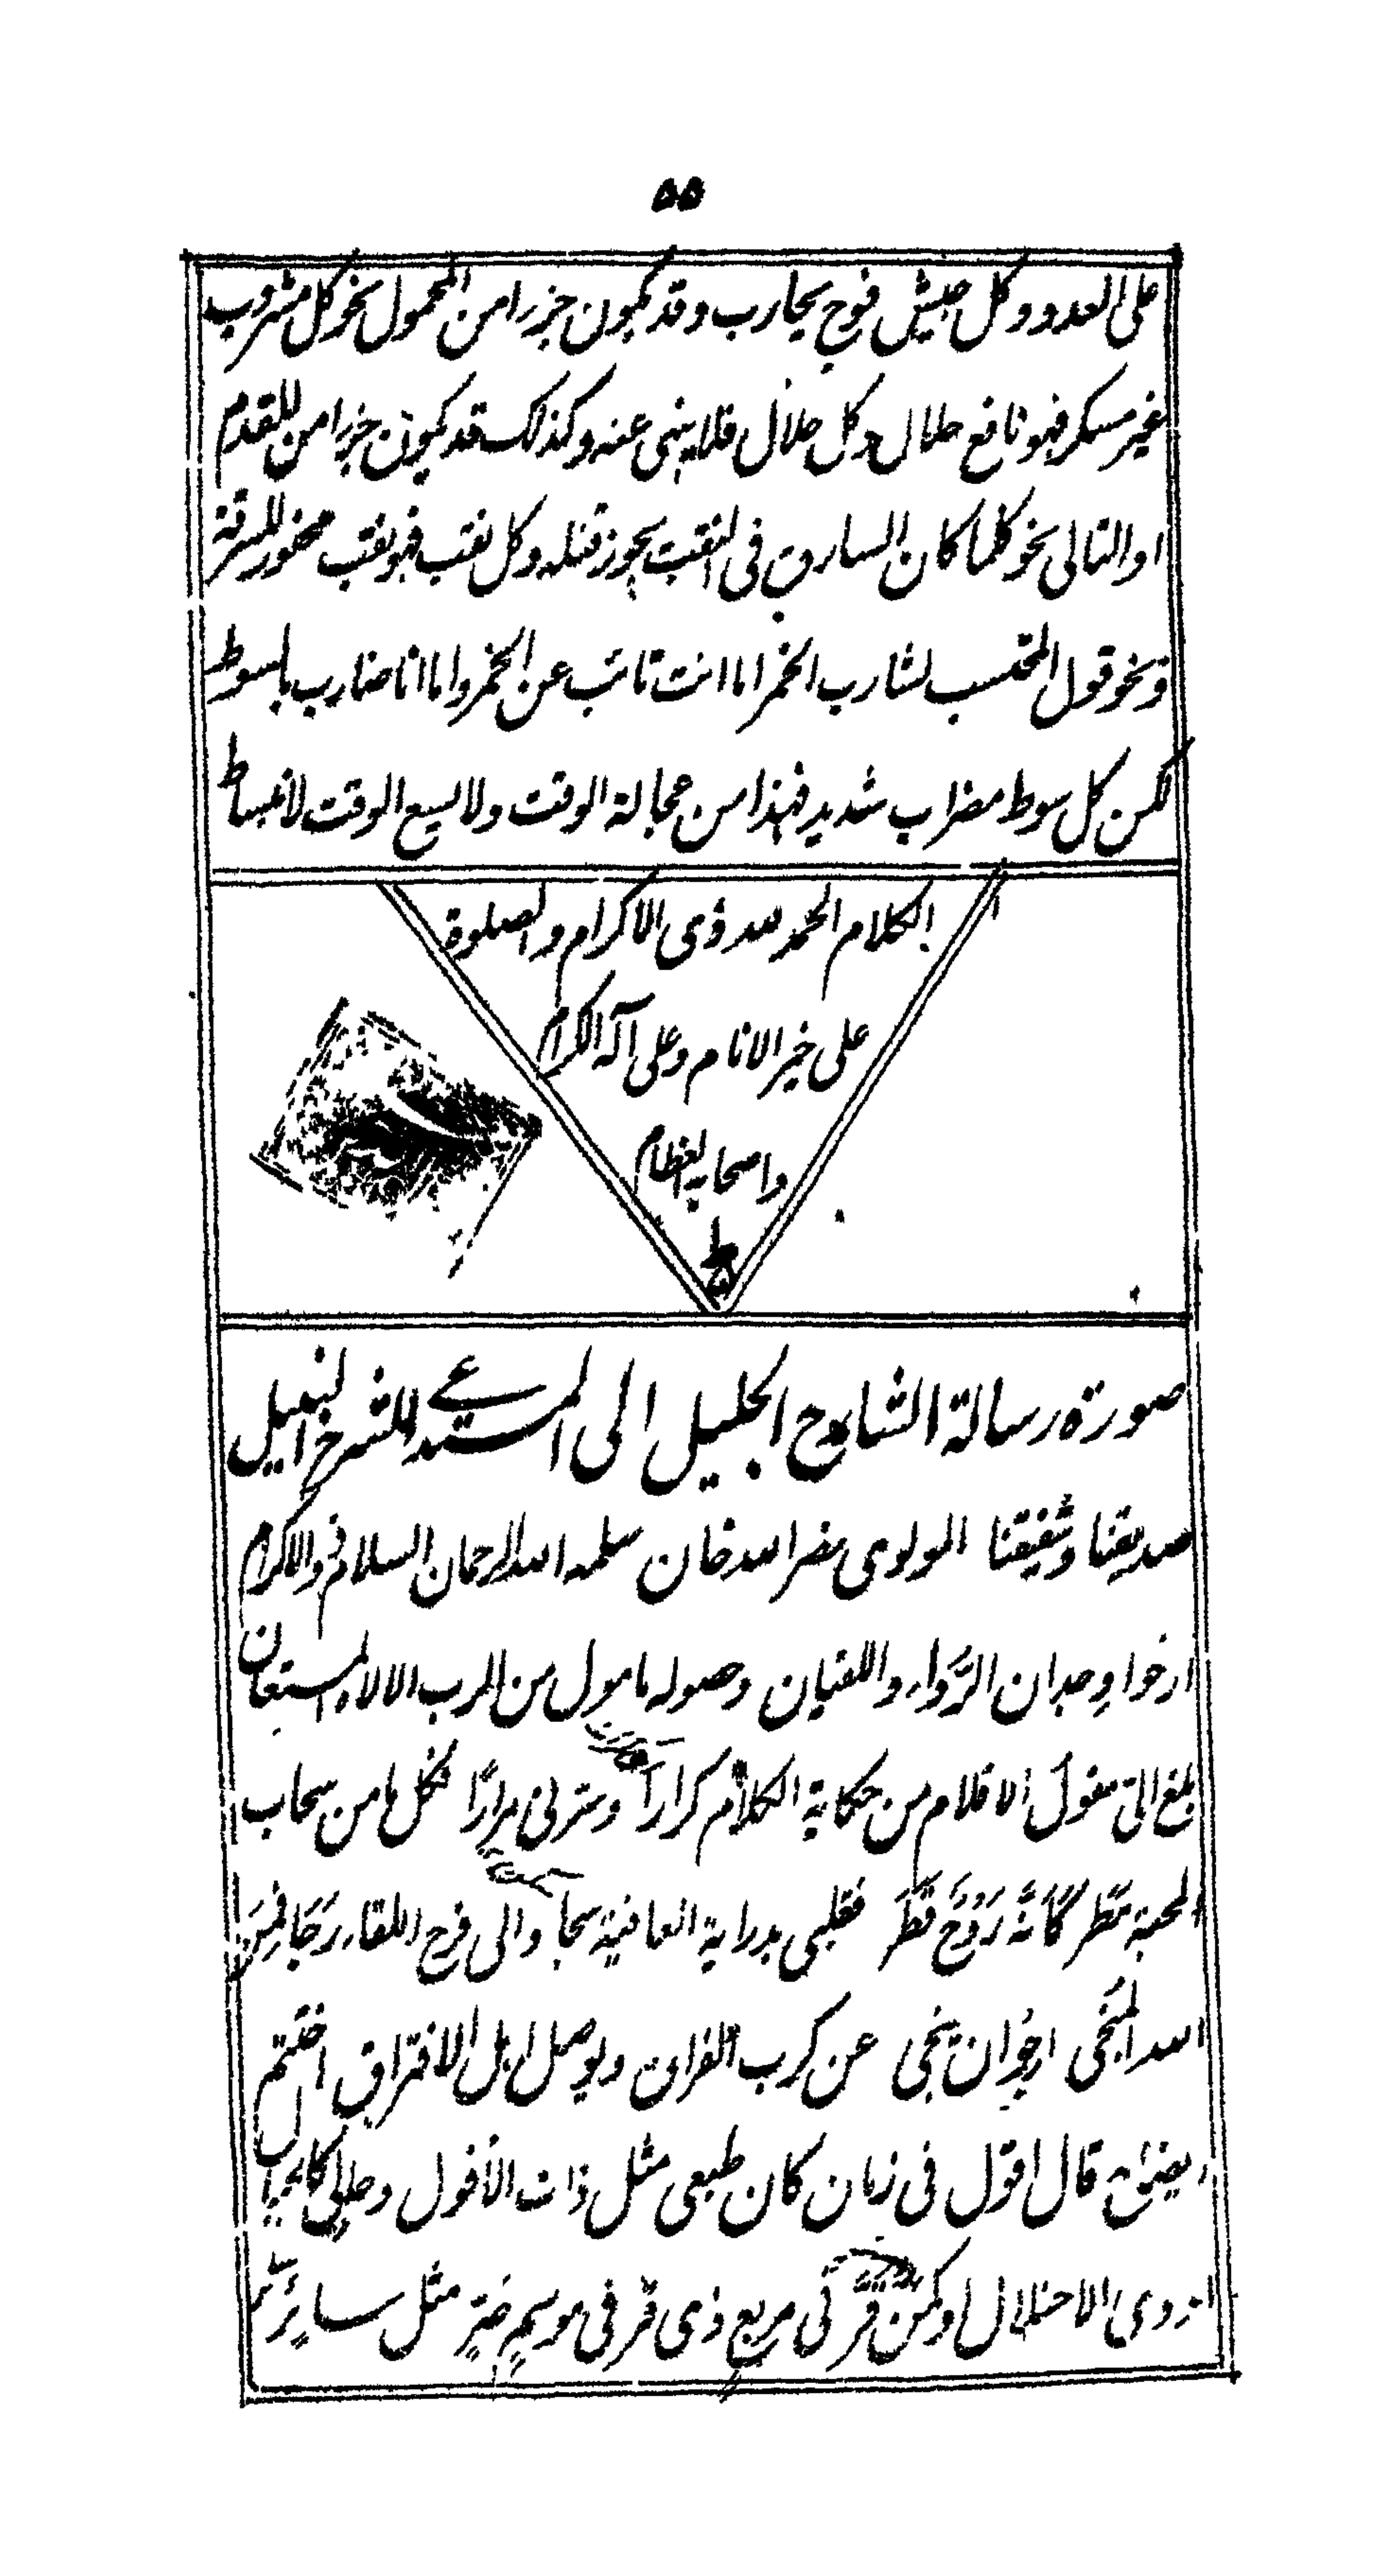 ٥٥
على العدو وكل جيش فوج يحارب وقد يكون جزرا من المحمول نحو كل مشروب
غير مسكر فهو نافع حلال وكل حلال فلا ينهى عنه وكذلك قد يكون جزرا من المقدم
او التالى نحو كلما كان السارق فى النقب يجوز قتله وكل نقب فهو نقب للسرقة
ونحو قول المحتسب لشارب الخمر اما انت تائب عن الخمر واما انا ضارب بالسوط
لكن كل سوط مضراب شديد فهذا من عجالة الوقت ولا يسع الوقت لانبساط
الكلام الحمد لله ذى الاكرام والصلوة
على خير الانام وعلى آله الكرام
واصحابه العظام
صورة رسالة الشارح الجليل الى المستدعى للشرح النبيل
صديقنا وشفيقنا المولوى نصر الله خان سلمه الله الرحمان السلام والاكرام
ارخوا وجدان الرواء واللقيان وصوله مامول من الرب الالاء المستعان
بلغ الىّ مقول الاقلام من حكاية الكلام كرارًا وسترنى مرارًا فكل ما من سحاب
المحبة مطر كانّه روح قطر فقلبى بدراية العافية سجا والى فرح اللقاء رجا فمن
الله المنجى ارجو ان ينجى عن كرب الفراق ويوصل ابل الافتراق اختتم
قال اقول فى زمان كان طبعى مثل ذات الافول وحالى
ذوى الاختلال او كمن قر فى مربع ذى قر فى موسم مثل سائر